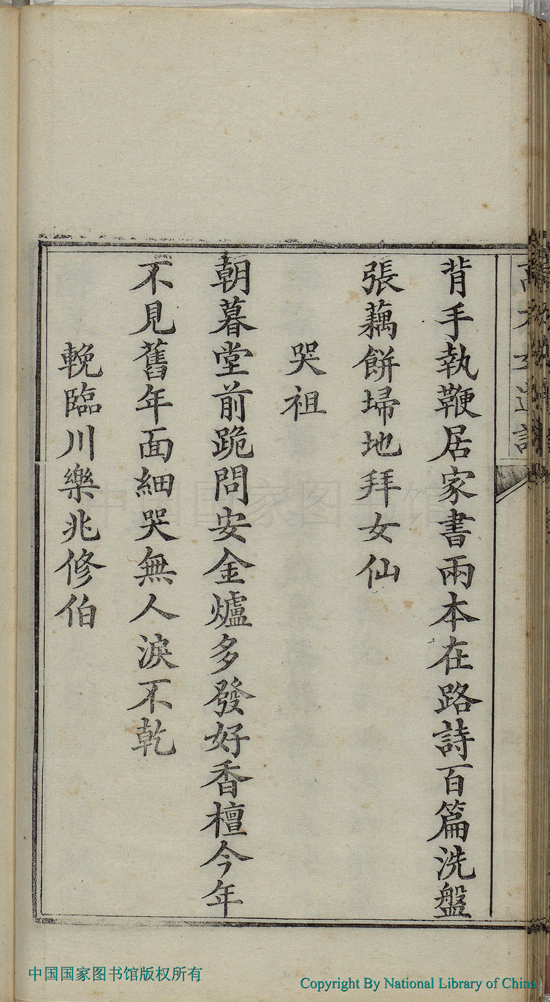 背手執鞭居家書兩本在路詩百篇洗盤
張藕餅埽地拜女仙
哭祖
朝暮堂前跪問安金爐多發好香檀今年
不見舊年面細哭無人淚不乾
輓臨川樂兆修伯
中国国家图书馆
中国国家图书馆版权所有
Copyright By National Library of China